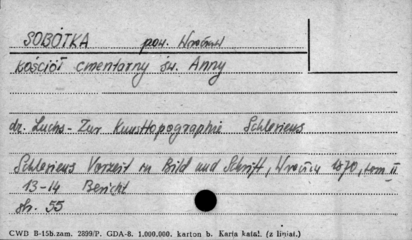 SOBÓTKA pow. Wrocław
kościół cmentarny św. Anny
dr. Luchs - Zur Kunsttopographie Schlesiens
Schlesiens Vorzeit in Bild und Schrift, Wrocław 1870, tom II
13-14 Bericht
str. 55
CWD B-15b.zam. 2899/P. GDA-8. 1.000.000. karton b. Karta katal. (z liniat.)